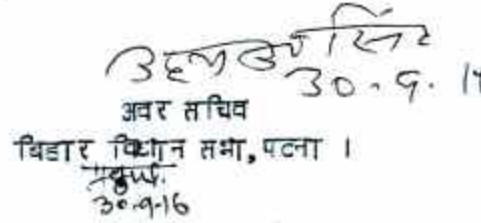 सिंह
30.9.1
अवर सचिव
बिहार विधान सभा, पटना ।
30.9.16